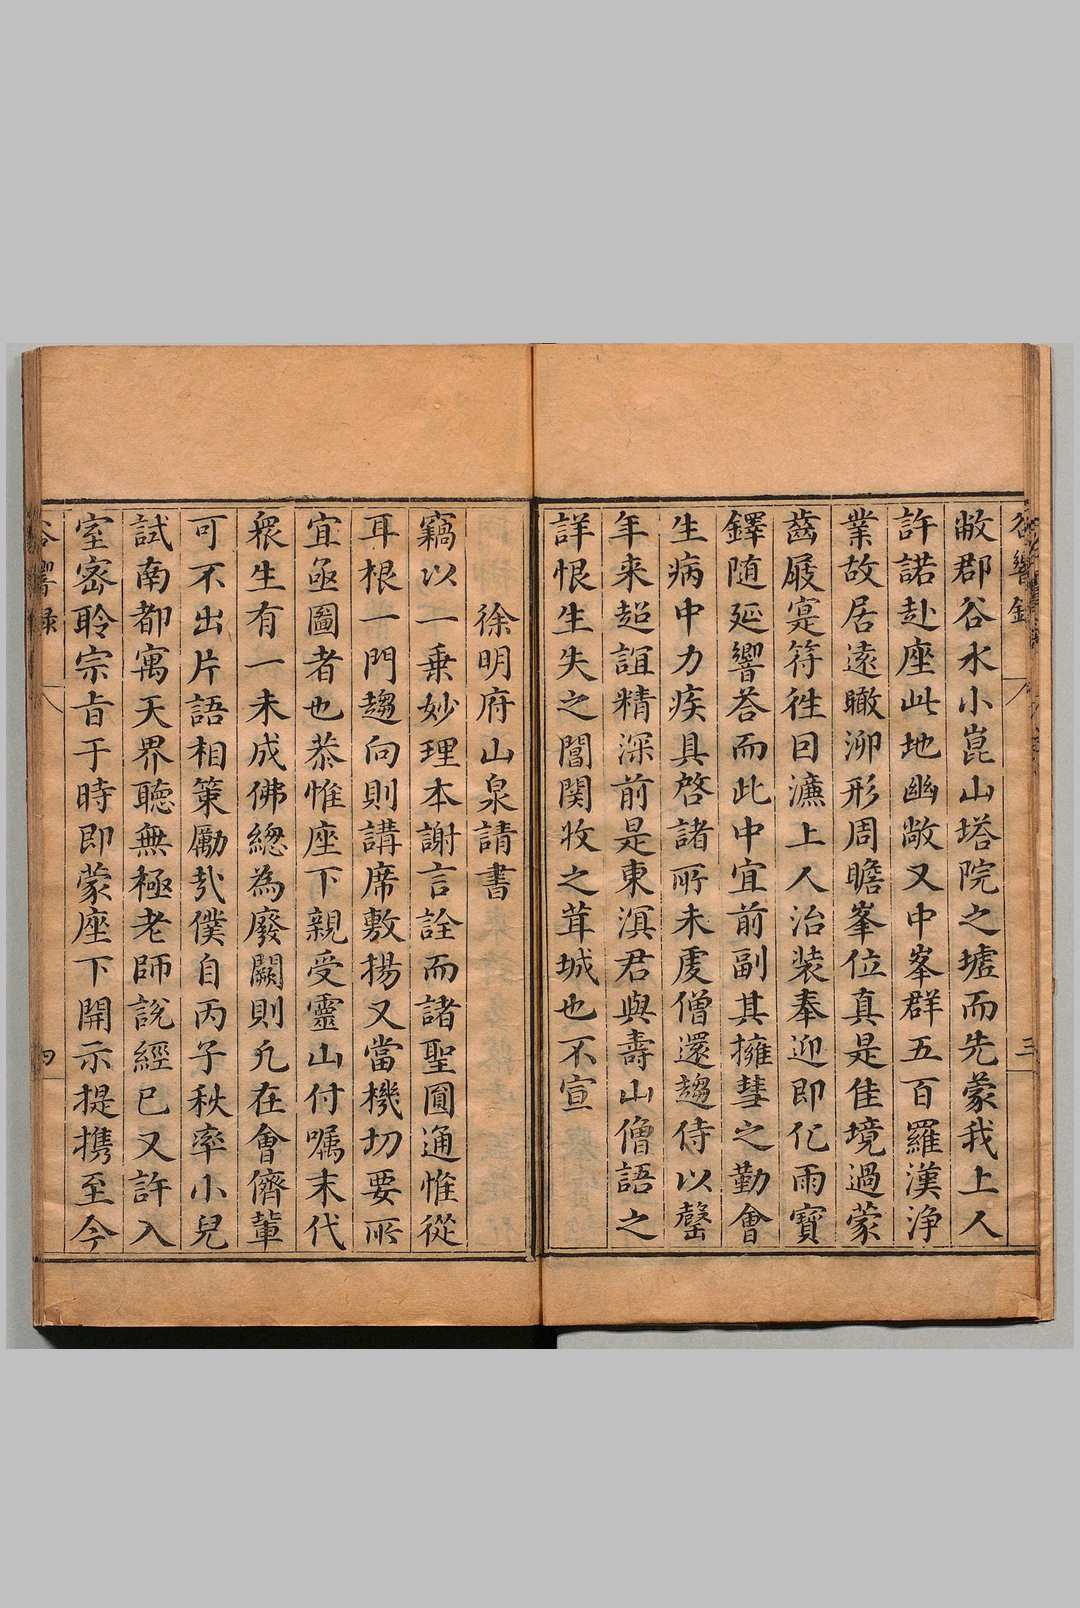 谷響錄
三
敝郡谷水小崑山塔院之墟而先蒙我上人
許諾赴座此地幽敞又中峯群五百羅漢浄
業故居遠瞰泖形周瞻峯位真是佳境過蒙
齒屐寔符徃囙濂上人治裝奉迎即化雨寶
鐸随延響荅而此中宜前副其擁彗之勤會
生病中力疾具啓諸所未虔僧還趨侍以罄
年来超誼精深前是東溟君與壽山僧語之
詳恨生失之閶関收之茸城也不宣
徐明府山泉請書
竊以一乗妙理本謝言詮而諸聖圓通惟從
耳根一門趨向則講席敷揚又當機切要所
宜亟圖者也恭惟座下親受靈山付嘱末代
衆生有一未成佛緫為廢闕則凢在會儕輩
可不出片語相策勵㢤僕自丙子秋率小兒
試南都寓天界聽無極老師説經已又許入
室密聆宗旨于時即蒙座下開示提携至今
谷響録
四